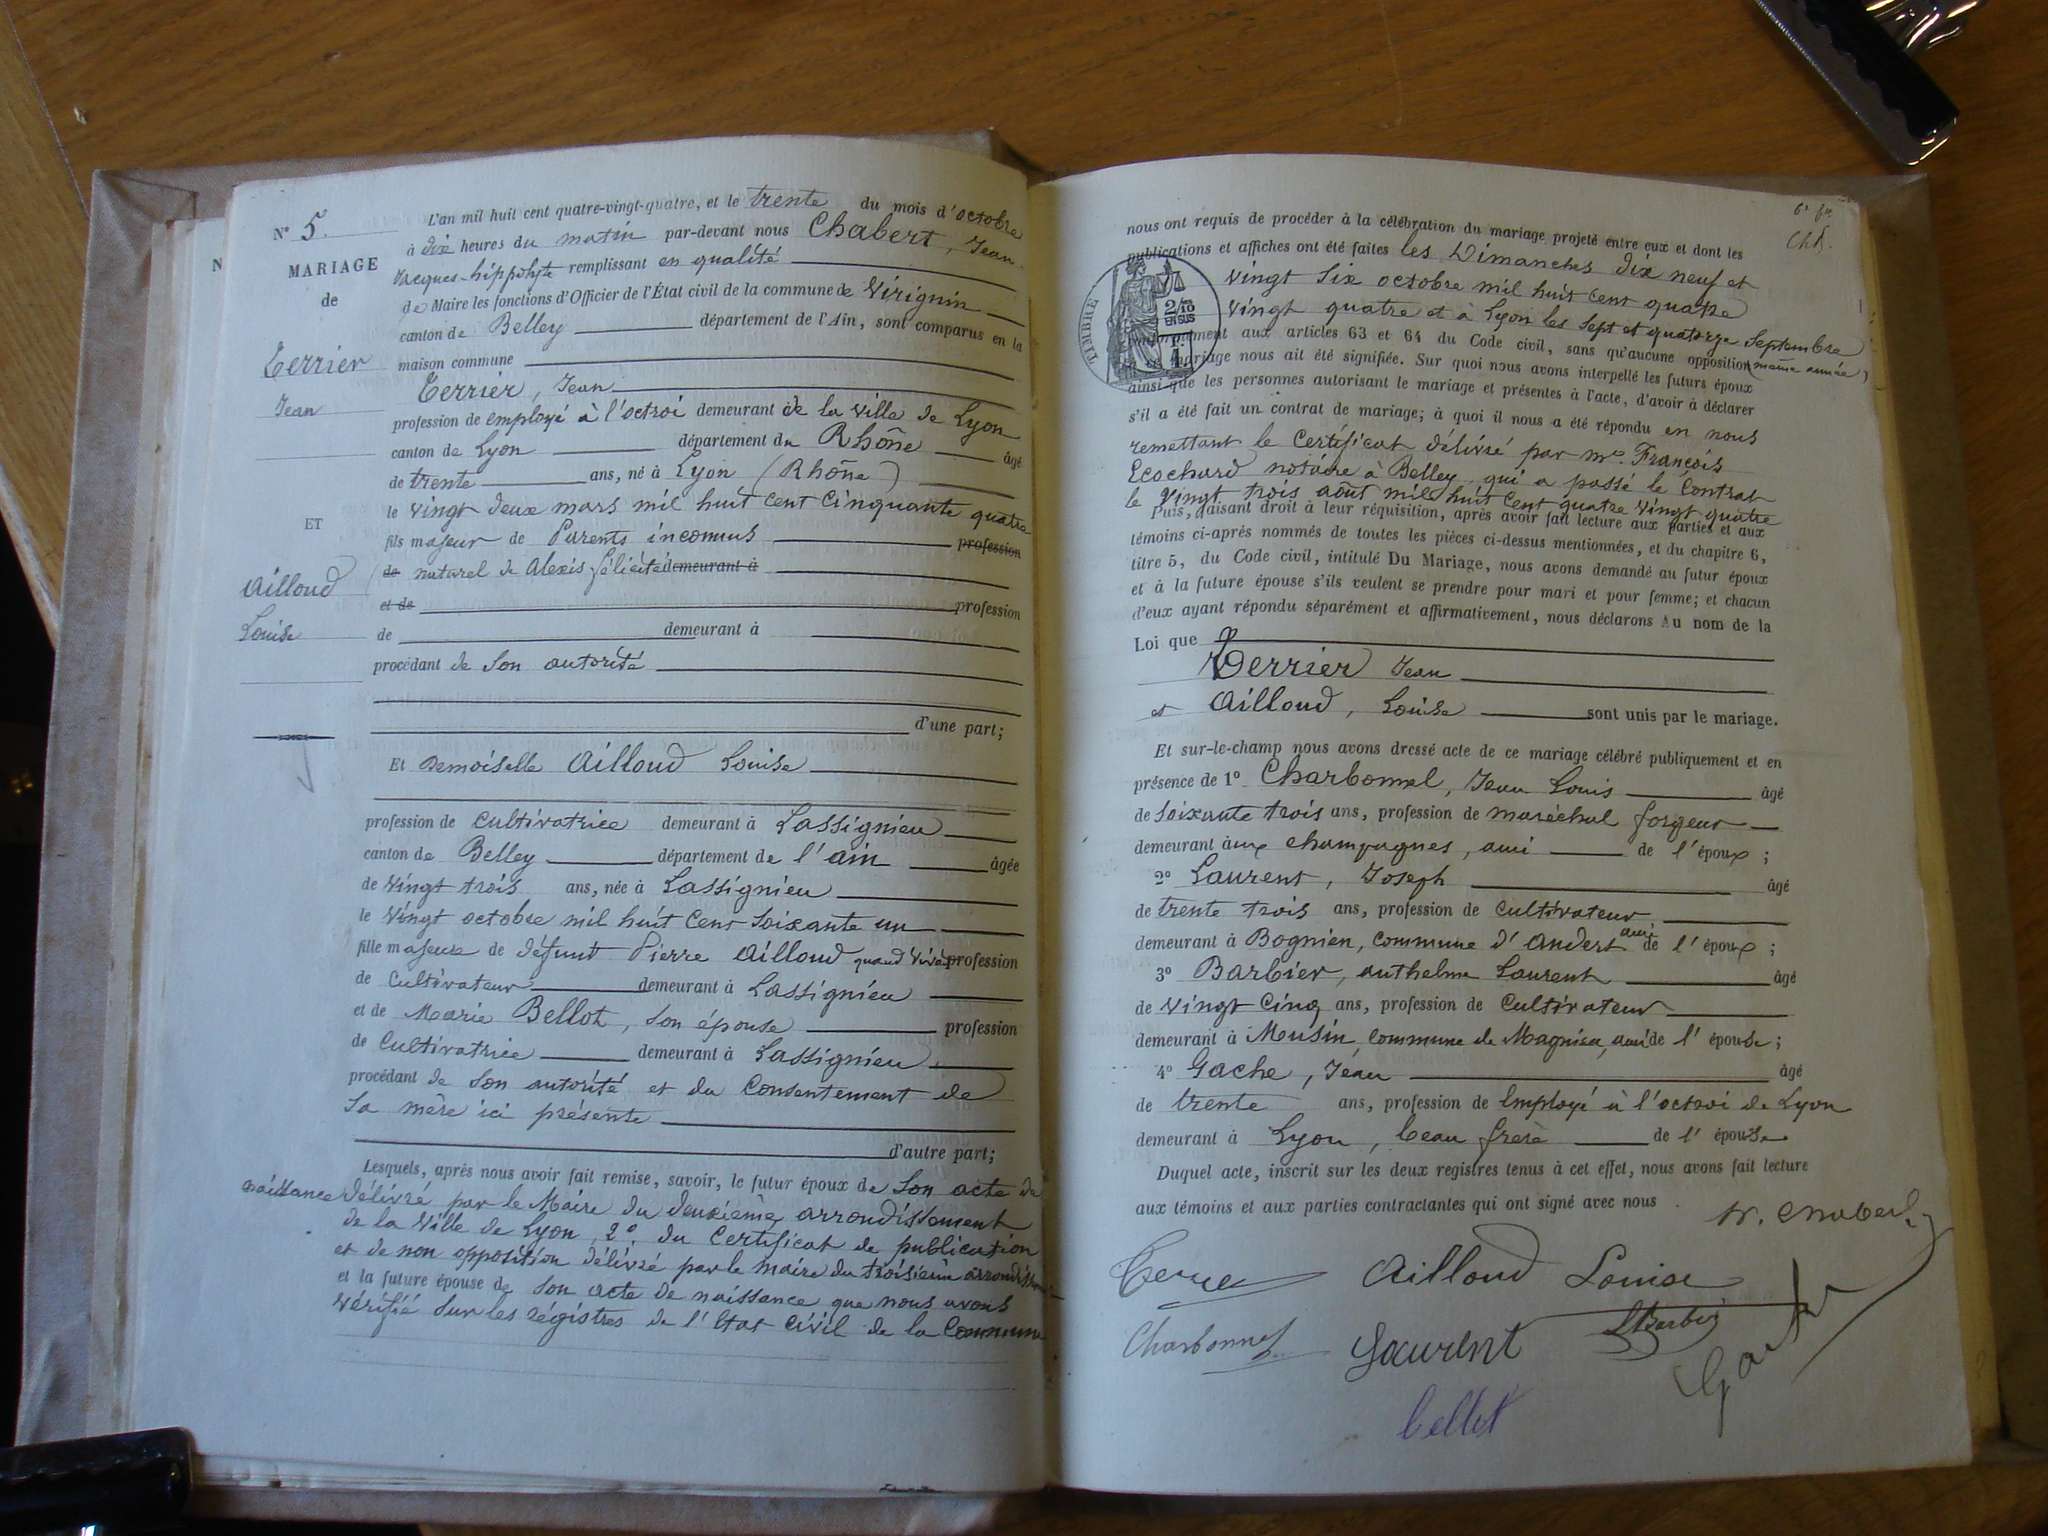 N° 5.
MARIAGE
de
Terrier
Jean
ET
Ailloud
Louise
L'an mil huit cent quatre-vingt-quatre, et le trente du mois d'octobre
à dix heures du matin par-devant nous Chabert, Jean-
Jacques-hippolyte remplissant en qualité
de Maire les fonctions d'Officier de l'État civil de la commune de Virignin
canton de Belley département de l'Ain, sont comparus en la
maison commune
Terrier, Jean
profession de employé à l'octroi demeurant de la ville de Lyon
canton de Lyon département du Rhône âgé
de trente ans, né à Lyon (Rhône)
le vingt deux mars mil huit cent cinquante quatre
fils majeur de Parents inconnus profession
de naturel de Alexis félicité demeurant à
et de profession
de demeurant à
procédant de son autorité
d'une part;
Et Demoiselle Ailloud Louise
profession de Cultivatrice demeurant à Lassignieu
canton de Belley département de l'ain âgée
de vingt trois ans, née à Lassignieu
le vingt octobre mil huit cent soixante un
fille majeure de défunt Pierre Ailloud quand vivait profession
de Cultivateur demeurant à Lassignieu
et de Marie Bellot, son épouse profession
de Cultivatrice demeurant à Lassignieu
procédant de son autorité et du consentement de
sa mère ici présente
d'autre part;
Lesquels, après nous avoir fait remise, savoir, le futur époux de son acte de
naissance délivré par le Maire du deuxième arrondissement
de la ville de Lyon, 2° du Certificat de publication
et de non opposition délivré par le maire du troisième arrondissement
et la future épouse de son acte de naissance que nous avons
vérifié sur les régistres de l'Etat civil de la Commune
6e fe
Ch.
nous ont requis de procéder à la célébration du mariage projeté entre eux et dont les
publications et affiches ont été faites les Dimanches dix neuf et
vingt six octobre mil huit cent quatre
vingt quatre et à Lyon les sept et quatorze septembre
(même année)
TIMBRE
2/10
EN SUS
1F
conformément aux articles 63 et 64 du Code civil, sans qu'aucune opposition
à ce mariage nous ait été signifiée. Sur quoi nous avons interpellé les futurs époux
ainsi que les personnes autorisant le mariage et présentes à l'acte, d'avoir à déclarer
s'il a été fait un contrat de mariage; à quoi il nous a été répondu en nous
remettant le Certificat délivré par me François
Ecochard notaire à Belley qui a passé le Contrat
le vingt trois août mil huit cent quatre vingt quatre
Puis, faisant droit à leur réquisition, après avoir fait lecture aux parties et aux
témoins ci-après nommés de toutes les pièces ci-dessus mentionnées, et du chapitre 6,
titre 5, du Code civil, intitulé Du Mariage, nous avons demandé au futur époux
et à la future épouse s'ils veulent se prendre pour mari et pour femme; et chacun
d'eux ayant répondu séparément et affirmativement, nous déclarons Au nom de la
Loi que
Terrier Jean
et Ailloud, Louise sont unis par le mariage.
Et sur-le-champ nous avons dressé acte de ce mariage célébré publiquement et en
présence de 1° Charbonnel, Jean Louis âgé
de soixante trois ans, profession de maréchal forgeur
demeurant à aux champagnes, ami de l'époux;
2° Laurent, Joseph âgé
de trente trois ans, profession de cultivateur
demeurant à Bognien, commune d'Andert ami de l'époux;
3° Barbier, anthelme Laurent âgé
de vingt cinq ans, profession de Cultivateur
demeurant à Musin, commune de Magnieu, ami de l'épouse;
4° Gache, Jean âgé
de trente ans, profession de Employé à l'octroi de Lyon
demeurant à Lyon, beau frère de l'épouse
Duquel acte, inscrit sur les deux registres tenus à cet effet, nous avons fait lecture
aux témoins et aux parties contractantes qui ont signé avec nous
H. Chabert
Terrier Ailloud Louise
Charbonnel Laurent LBarbier
Gache
bellot